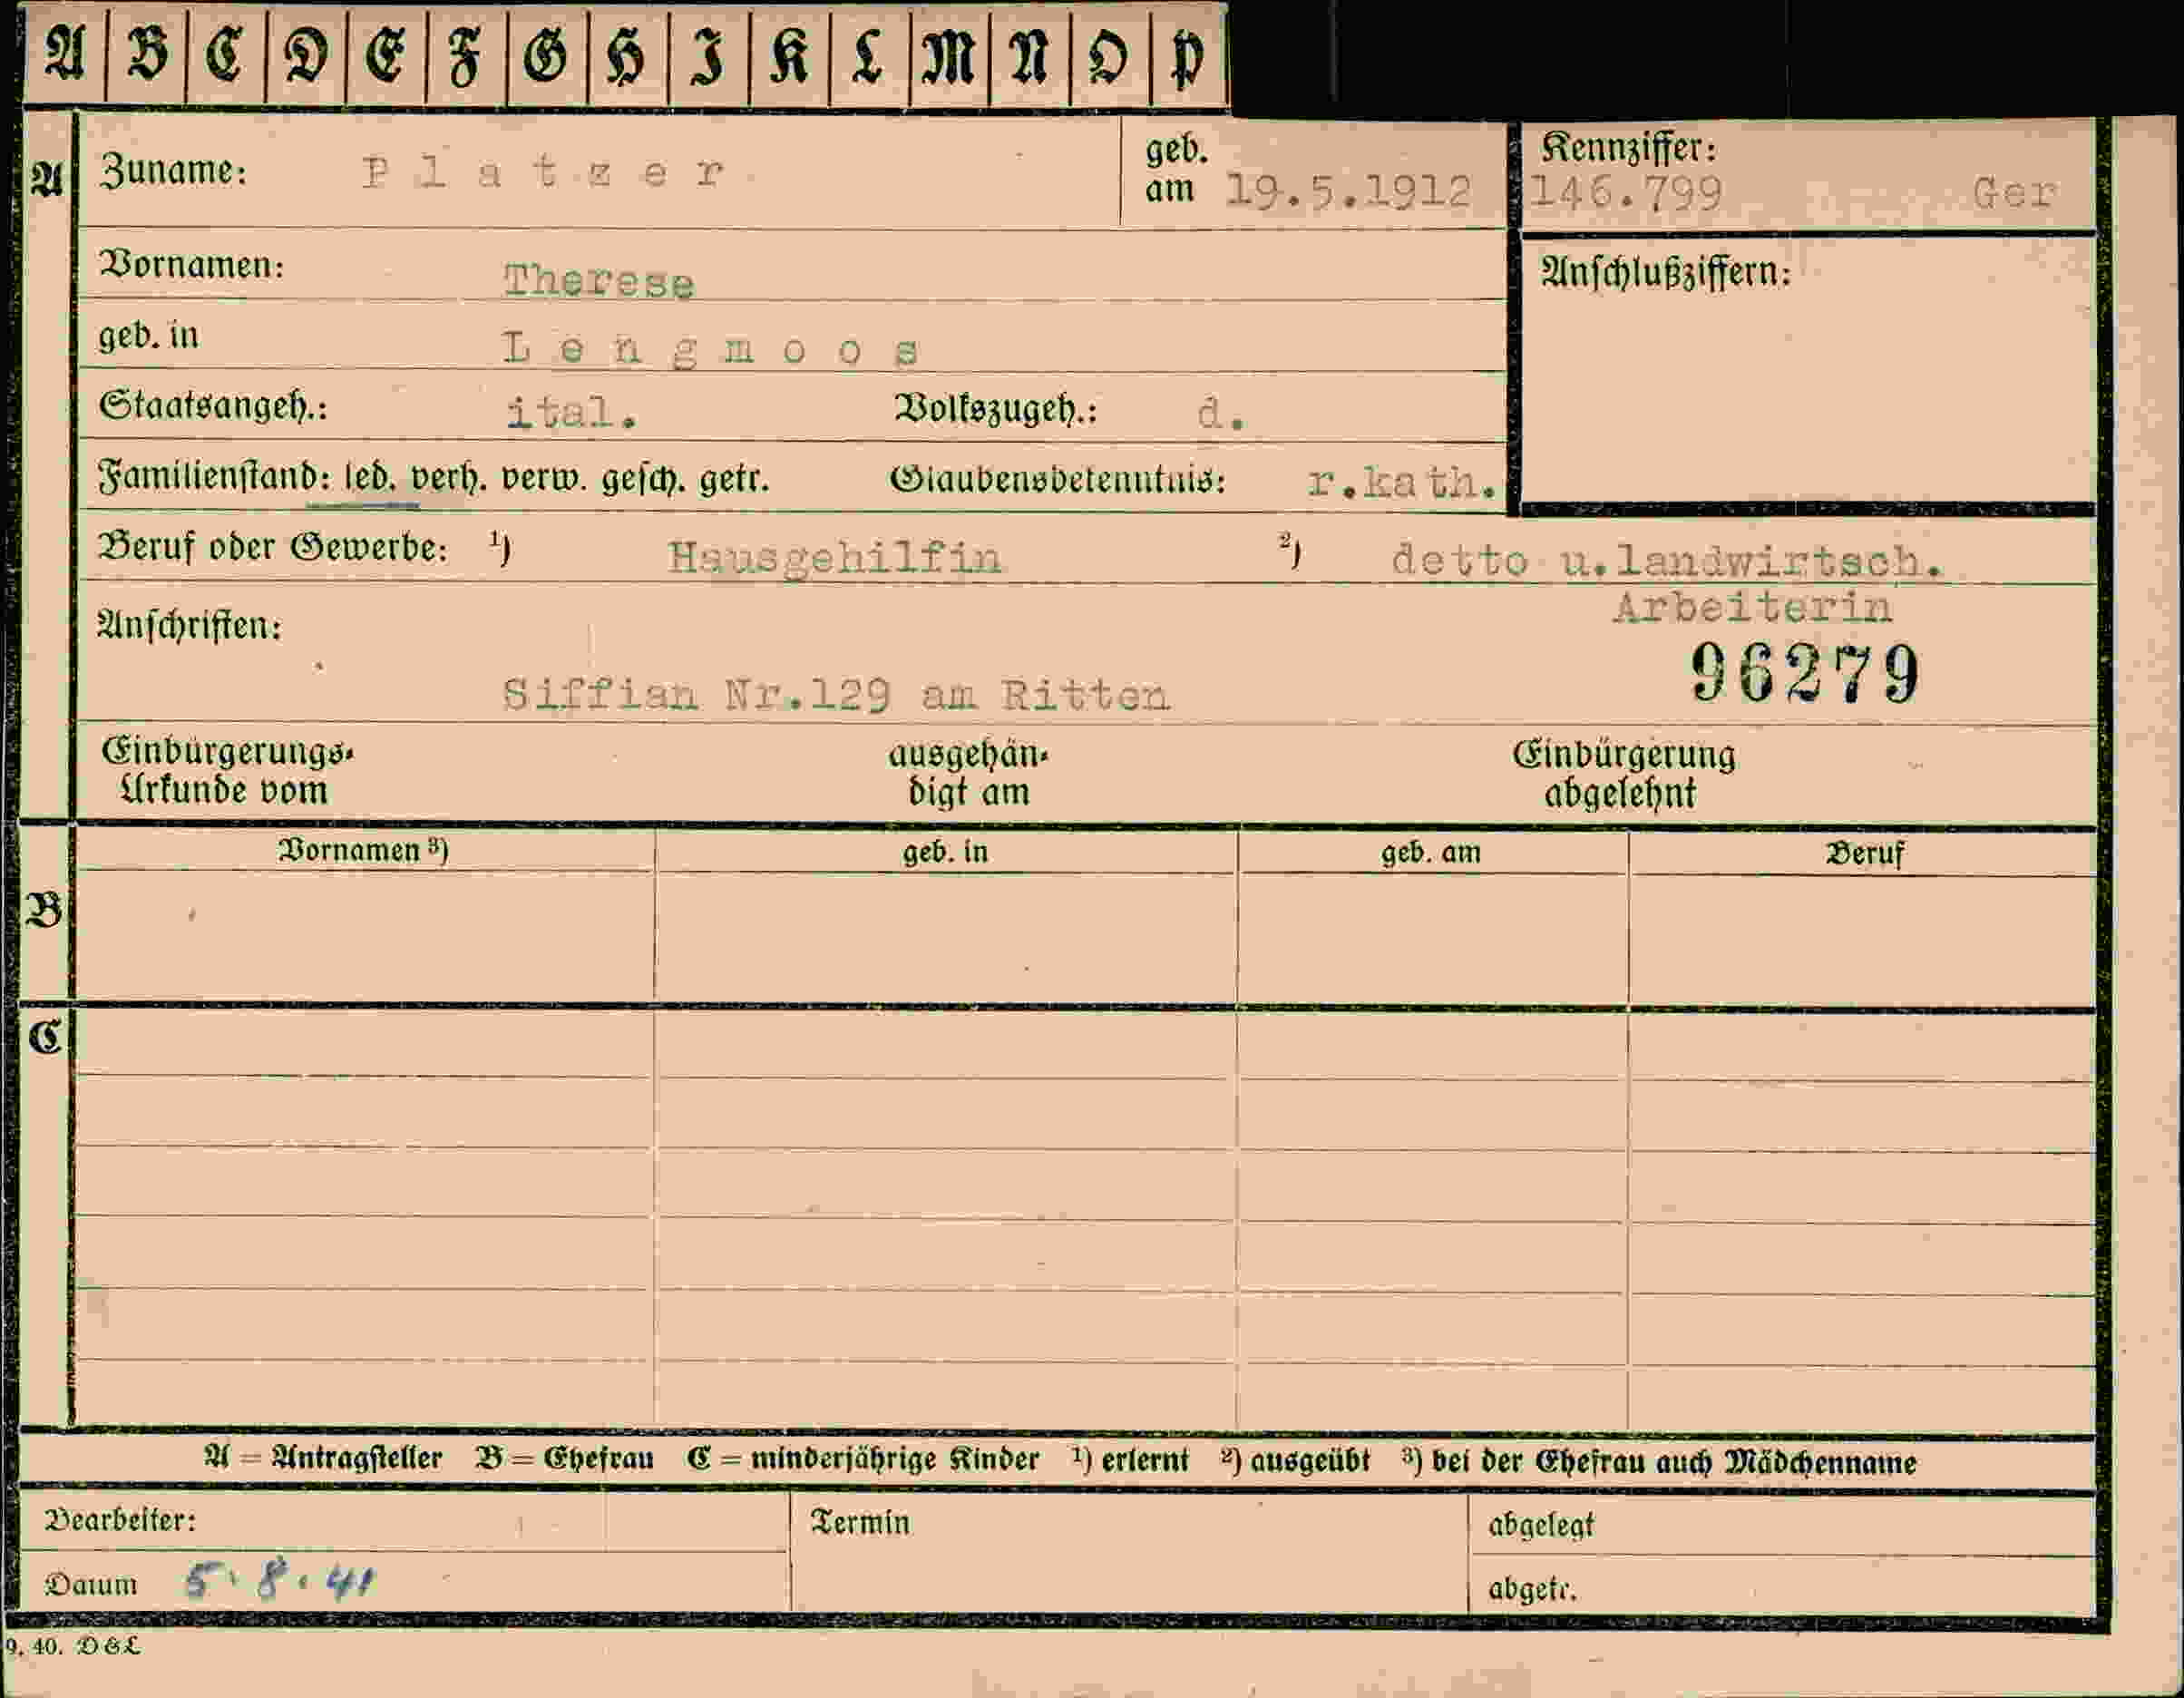 A B C D E F G H I K L M N O P
A Zuname: Platzer geb. am 19.5.1912 Kennziffer: 146.799 Ger
Vornamen: Therese Anschlußziffern:
geb. in Lengmoos
Staatsangeh.: ital. Volkszugeh.: d.
Familienstand: led. verh. verw. gesch. getr. Glaubensbekenntnis: r.kath.
Beruf oder Gewerbe: ¹) Hausgehilfin ²) detto u.landwirtsch.
Arbeiterin
Anschriften:
96279
Siffian Nr.129 am Ritten
Einbürgerungs- ausgehän- Einbürgerung
Urkunde vom digt am abgelehnt
Vornamen ³) geb. in geb. am Beruf
B
C
A = Antragsteller B = Ehefrau C = minderjährige Kinder ¹) erlernt ²) ausgeübt ³) bei der Ehefrau auch Mädchenname
Bearbeiter: Termin abgelegt
Datum 5.8.41 abgetr.
9. 40. DGL